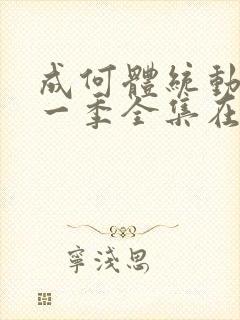 成何體統動
一季全集在
寧淺思